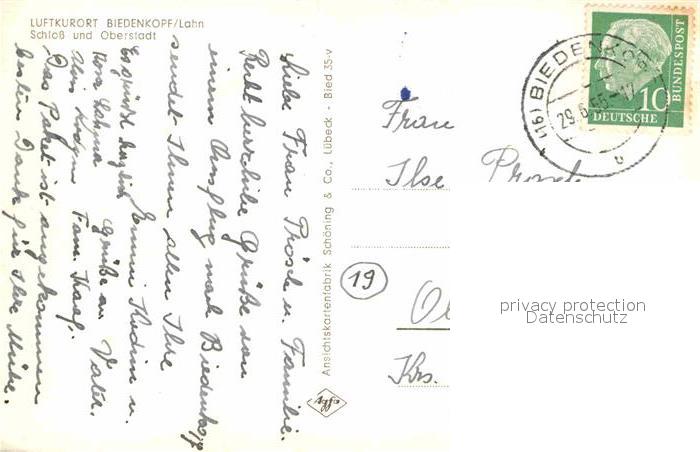 LUFTKURORT BIEDENKOPF/Lahn
Schloß und Oberstadt
Liebe Frau Prösch u. Familie.
Recht herzliche Grüße von
einem Ausflug nach Biedenkopf
sendet Ihnen allen Ihre
Emmi u.
Es grüßt herzlich Grüße an Vater.
Fam.
Das Paket ist angekommen
besten Dank für Ihre Mühe.
Ansichtskartenfabrik Schöning & Co., Lübeck - Bied 35-v
Frau
Ilse
19
Krs.
(16) BIEDENKOPF
29.6.56-17
DEUTSCHE
BUNDESPOST
10
privacy protection
Datenschutz